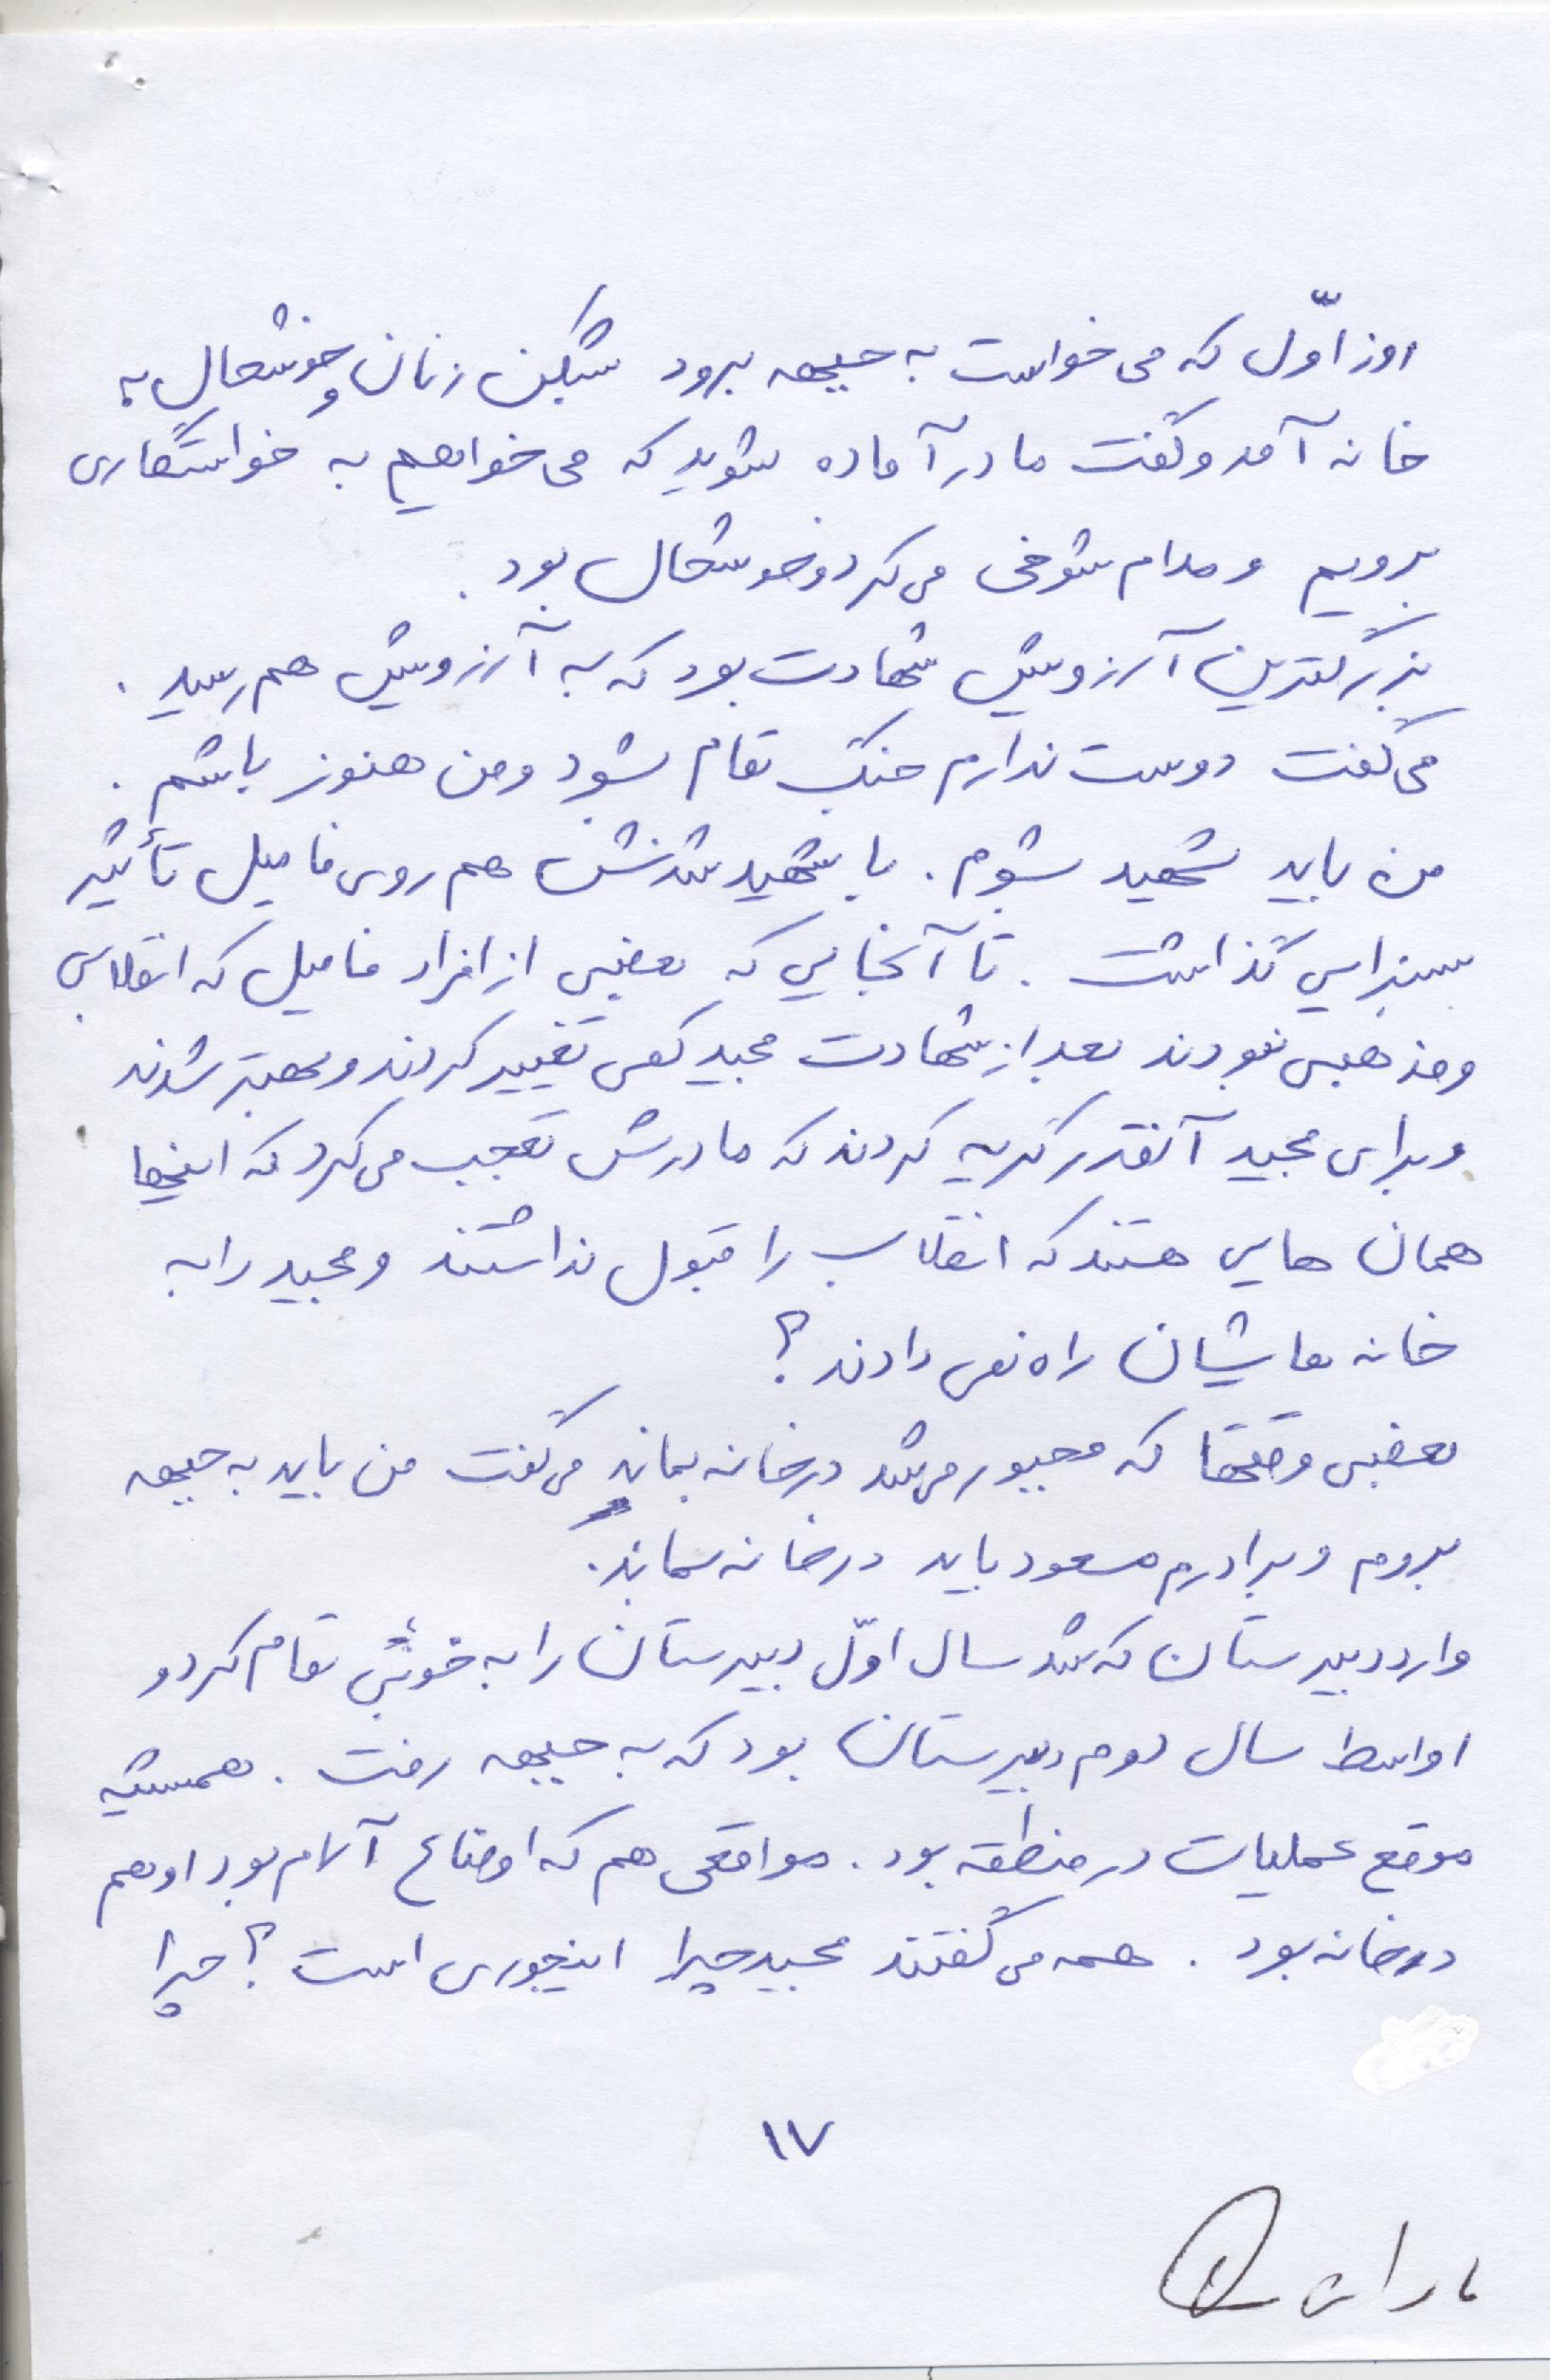 روز اوّل که می خواست به جبهه برود بشکن زنان و خوشحال به
خانه آمد و گفت مادر آماده شوید که می خواهیم به خواستگاری
برویم و مدام شوخی می کرد و خوشحال بود.
بزرگترین آرزویش شهادت بود که به آرزویش هم رسید.
می گفت دوست ندارم جنگ تمام بشود و من هنوز باشم.
من باید شهید بشوم. با شهید شدنش هم روی فامیل تأثیر
بسزایی گذاشت. تا آنجایی که بعضی از افراد فامیل که انقلابی
و مذهبی نبودند بعد از شهادت مجید کمی تغییر کردند و بهتر شدند
و برای مجید آنقدر گریه کردند که مادرش تعجب می کرد که اینها
همان هایی هستند که انقلاب را قبول نداشتند و مجید را به
خانه هایشان راه نمی دادند؟
بعضی وقتها که مجبور می شد در خانه بماند می گفت من باید به جبهه
بروم و برادرم مسعود باید در خانه بماند.
وارد دبیرستان که شد سال اوّل دبیرستان را به خوبی تمام کرد و
اواسط سال دوم دبیرستان بود که به جبهه رفت. همیشه
موقع عملیات در منطقه بود. مواقعی هم که اوضاع آرام بود او هم
در خانه بود. همه می گفتند مجید چرا اینجوری است؟ چرا
۱۷